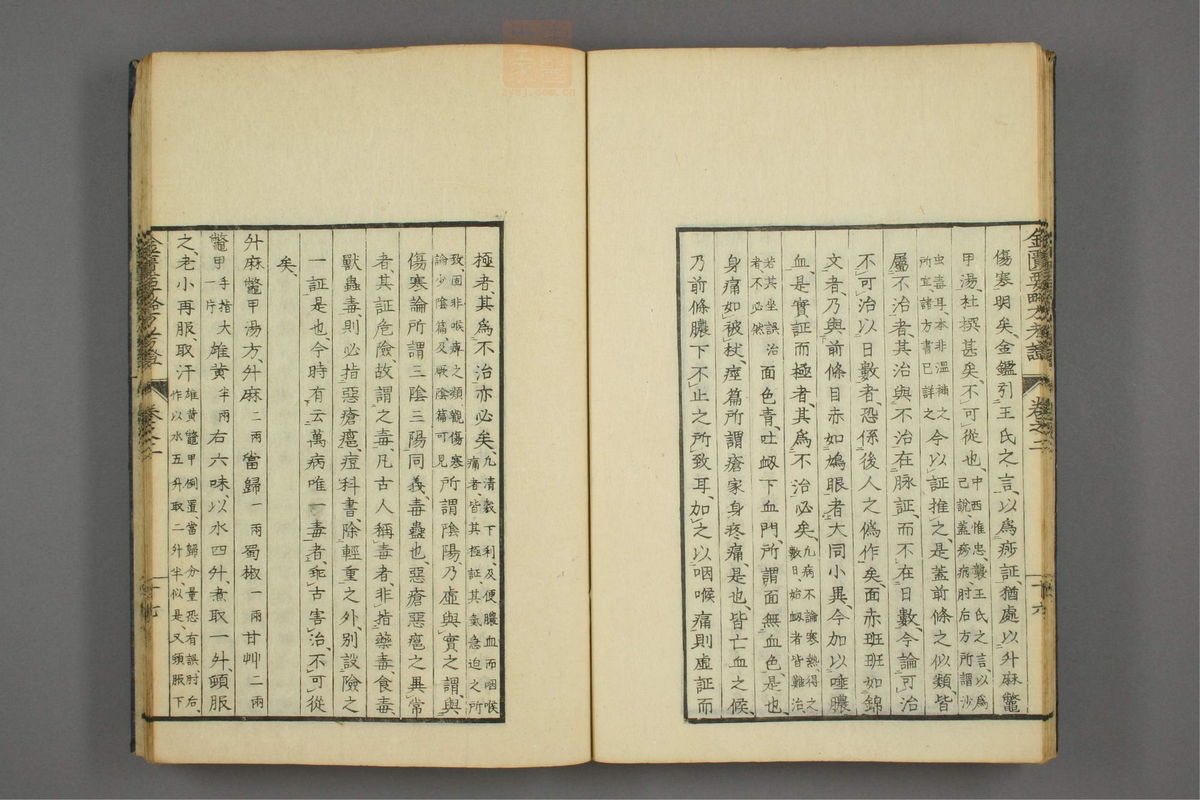 傷寒明矣、金鑑引王氏之言、以爲痧証、猶處以升麻鱉
甲湯、杜撰甚矣、不可從也、中西惟忠、襲王氏之言、以爲
己說、蓋痧病、肘后方所謂沙
虫毒耳、本非溫補之
所宜、諸方書已詳之
今以証推之、是蓋前條之似類、皆
屬不治者、其治與不治在脉証、而不在日數、今論可治
不可治以日數者、恐係後人之僞作矣、面赤班班如錦
文者、乃與前條目赤如鳩眼者大同小異、今加以唾膿
血、是實証而極者、其爲不治必矣、凡病不論寒熱、得之
數日、始衂者皆難治、
若其坐誤治
者不必然
面色青、吐衂下血門、所謂面無血色是也、
身痛如被杖、痙篇所謂瘡家身疼痛、是也、皆亡血之候、
乃前條膿下不止之所致耳、加之以咽喉痛、則虛証而
極者、其爲不治亦必矣、凡清穀下利、及便膿血而咽喉
痛者、皆其極証、其氣急迫之所
致、固非喉痺之類、觀傷寒
論少陰篇、及厥陰篇可見
所謂陰陽、乃虛與實之謂、與
傷寒論所謂三陰三陽同義、毒蠱也、惡瘡惡瘟之異常
者、其証危險、故謂之毒、凡古人稱毒者、非指藥毒食毒、
獸蟲毒、則必指惡瘡瘟、痘科書、除輕重之外、別設險之
一証是也、今時有云萬病唯一毒者、乖古害治、不可從
矣、
升麻鱉甲湯方、升麻二兩當歸一兩蜀椒一兩甘艸二兩
鱉甲手指大
一片
雄黄半兩右六味、以水四升、煮取一升、頓服
之、老小再服、取汗雄黄鱉甲倒置、當歸分量恐有誤、肘后、
作以水五升取二升半、似是、又頓服下
金匱要略方析義
卷之二
十六
卷之二
十七